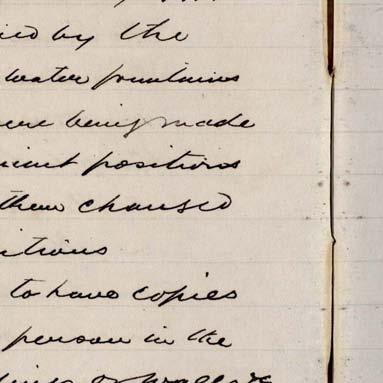 ied by the
water fountains
were being made
ient positions
them changed
itions
to have copies
person in the